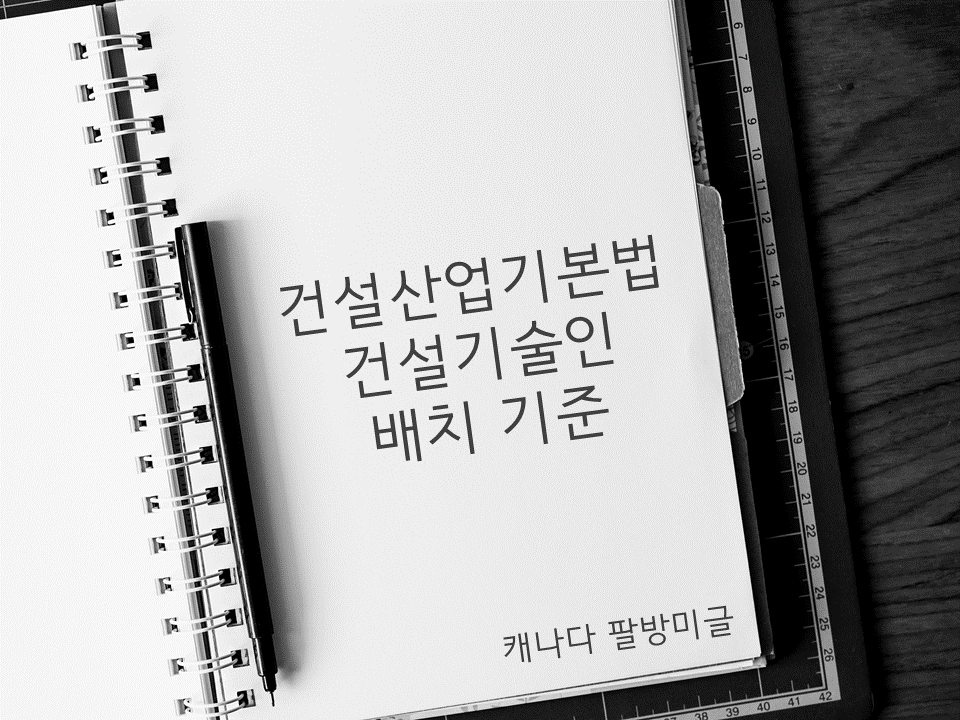 건설산업기본법
건설기술인
배치 기준
캐나다 팔방미글
6
7
8
9
10
11
12
13
14
15
16
17
18
19
20
21
22
23
24
25
26
37 38 39 40 41 42